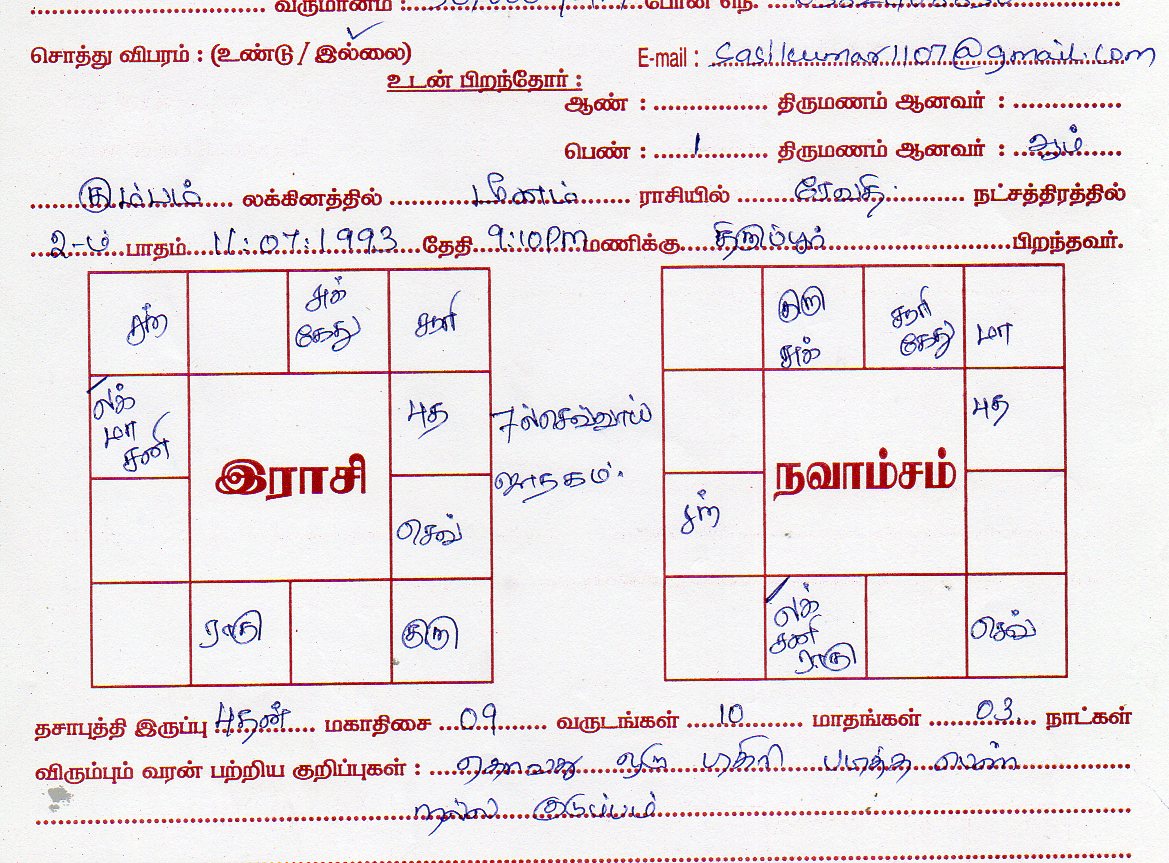 வருமானம் : போன் எண்.
சொத்து விபரம் : (உண்டு / இல்லை) E-mail : sasikumar1107@gmail.com
உடன் பிறந்தோர் :
ஆண் : திருமணம் ஆனவர் :
பெண் : 1 திருமணம் ஆனவர் : ஆம்
கும்பம் லக்கினத்தில் மீனம் ராசியில் ரேவதி நட்சத்திரத்தில்
2-ம் பாதம் 11:07:1993 தேதி 9:10PM மணிக்கு திருப்பூர் பிறந்தவர்.
சந்
சுக்
கேது
சூரி
லக்
மா
சனி
புத
இராசி
செவ்
ராகு
குரு
7ல் செவ்வாய்
ஜாதகம்.
குரு
சுக்
சூரி
கேது
மா
புத
நவாம்சம்
சந்
லக்
சனி
ராகு
செவ்
தசாபுத்தி இருப்பு புதன் மகாதிசை 09 வருடங்கள் 10 மாதங்கள் 03 நாட்கள்
விரும்பும் வரன் பற்றிய குறிப்புகள் : ஏதாவது ஒரு டிகிரி படித்த பெண்
நல்ல குடும்பம்